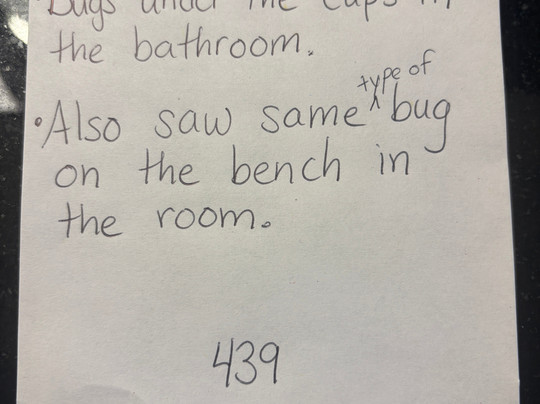 Bugs under the cups in
the bathroom.
• Also saw same type of bug
on the bench in
the room.
439